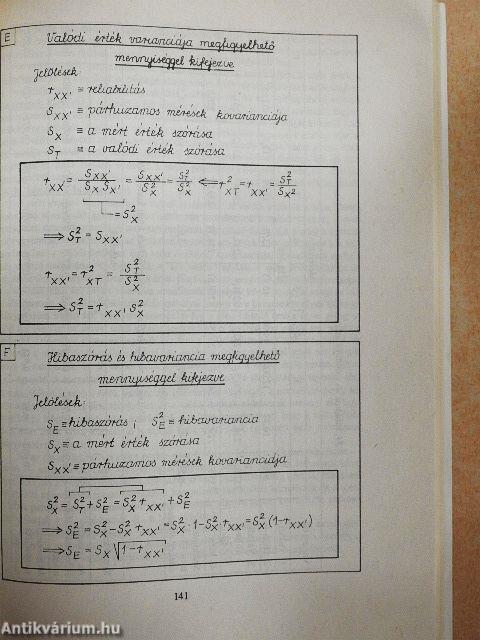 E
Valódi érték varianciája megfigyelhető
mennyiséggel kifejezve
Jelölések:
r_XX' ≡ reliabilitás
S_XX' ≡ párhuzamos mérések kovarianciája
S_X ≡ a mért érték szórása
S_T ≡ a valódi érték szórása
r_XX' = S_XX' / (S_X S_X') = S_XX' / S_X² = S_T² / S_X² ⟸ r²_XT = r_XX' = S_T² / S_X²
= S_X²
⟹ S_T² = S_XX'
r_XX' = r²_XT = S_T² / S_X²
⟹ S_T² = r_XX' S_X²
F
Hibaszórás és hibavariancia megfigyelhető
mennyiséggel kifejezve
Jelölések:
S_E ≡ hibaszórás ; S_E² ≡ hibavariancia
S_X ≡ a mért érték szórása
S_XX' ≡ párhuzamos mérések kovarianciája
S_X² = S_T² + S_E² = S_X² r_XX' + S_E²
⟹ S_E² = S_X² - S_X² r_XX' = S_X² · 1 - S_X² r_XX' = S_X² (1 - r_XX')
⟹ S_E = S_X √(1 - r_XX')
141
Antikvárium.hu